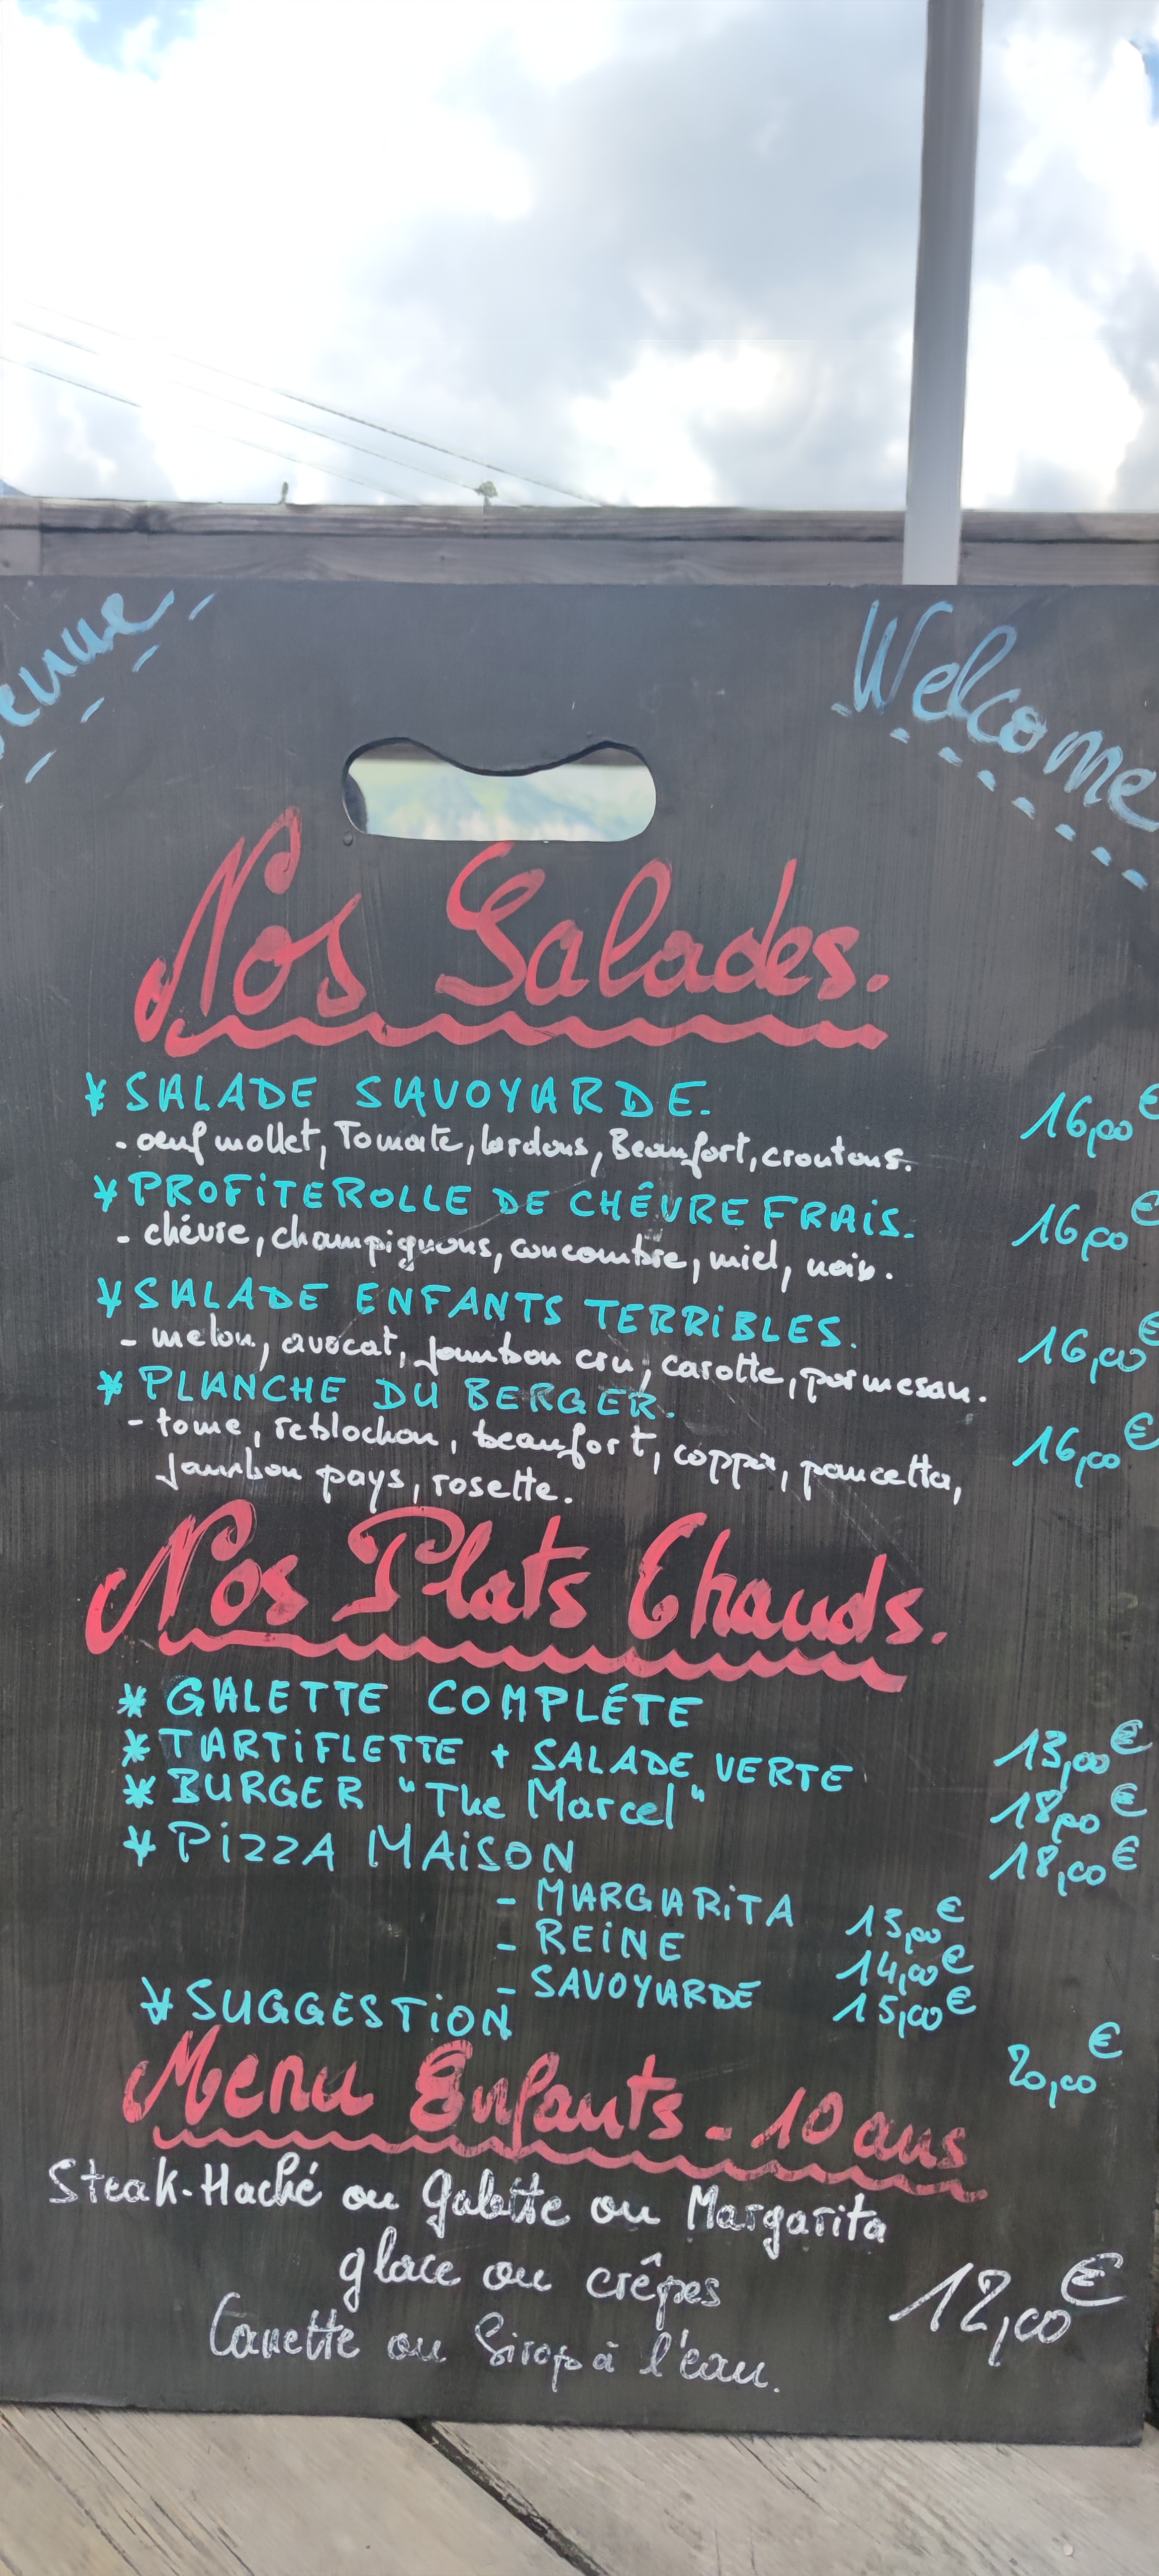 Welcome
Nos Salades.
* SALADE SAVOYARDE. 16,00€
- oeuf mollet, Tomate, lardons, Beaufort, croutons.
* PROFiTEROLLE DE CHÉVRE FRAiS. 16,00€
- chévre, champignons, concombre, miel, noix.
* SALADE ENFANTS TERRiBLES. 16,00€
- melon, avocat, jambon cru, carotte, parmesan.
* PLANCHE DU BERGER. 16,00€
- tome, reblochon, beaufort, coppa, pancetta,
jambon pays, rosette.
Nos Plats Chauds.
* GALETTE COMPLÉTE 13,00€
* TARTiFLETTE + SALADE VERTE 18,00€
* BURGER "The Marcel" 18,00€
* PiZZA MAiSON
- MARGARiTA 13,00€
- REiNE 14,00€
- SAVOYARDE 15,00€
* SUGGESTiON 20,00€
Menu Enfants - 10 ans
Steak-Haché ou Galette ou Margarita
glace ou crêpes 12,00€
Canette ou Sirop à l'eau.